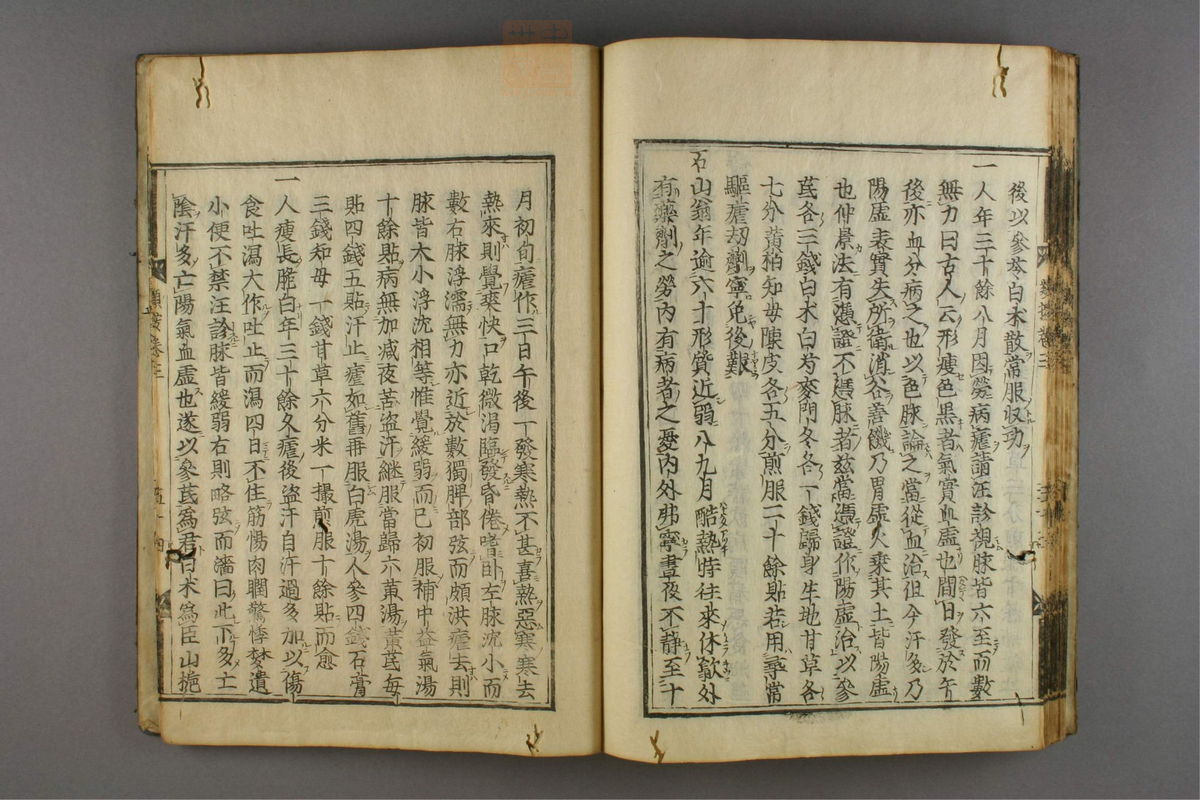 後以參苓白朮散常服収功
一人年三十餘八月因勞病瘧請汪診視脉皆六至而數
無力曰古人云形瘦色黒者氣實血虛也間日發於午
後亦血分病之也以色脉論之當從血治但今汗多乃
陽虛表實失所衛消谷善饑乃胃虛火乗其土皆陽虛
也仲景法有憑證不憑脉者茲當憑證作陽虛治以參
茋各三錢白朮白芍麥門冬各一錢歸身生地甘草各
七分黄柏知母陳皮各五分煎服二十餘貼若用尋常
驅瘧刧劑寧免後艱
石山翁年逾六十形質近弱八九月酷熱時往來休歙外
有藥劑之勞内有病者之憂内外弗寧晝夜不靜至十
月初旬瘧作三日午後一發寒熱不甚喜熱惡寒寒去
熱來則覺爽快口乾微渴臨發昏倦嗜卧左脉沈小而
數右脉浮濡無力亦近於數獨脾部弦而頗洪瘧去則
脉皆大小浮沈相等惟覺緩弱而已初服補中益氣湯
十餘貼病無加减夜苦盗汗継服當歸六黄湯黄茋每
貼四錢五貼汗止瘧如舊再服白虎湯人參四錢石膏
三錢知母一錢甘草六分米一撮煎服十餘貼而愈
一人瘦長脆白年三十餘久瘧後盗汗自汗過多加以傷
食吐瀉大作吐止而瀉四日不住筋惕肉瞤驚悸夢遺
小便不禁汪診脉皆緩弱右則略弦而濇曰此下多亡
隂汗多亡陽氣血虛也遂以參茋爲君白朮爲臣山梔